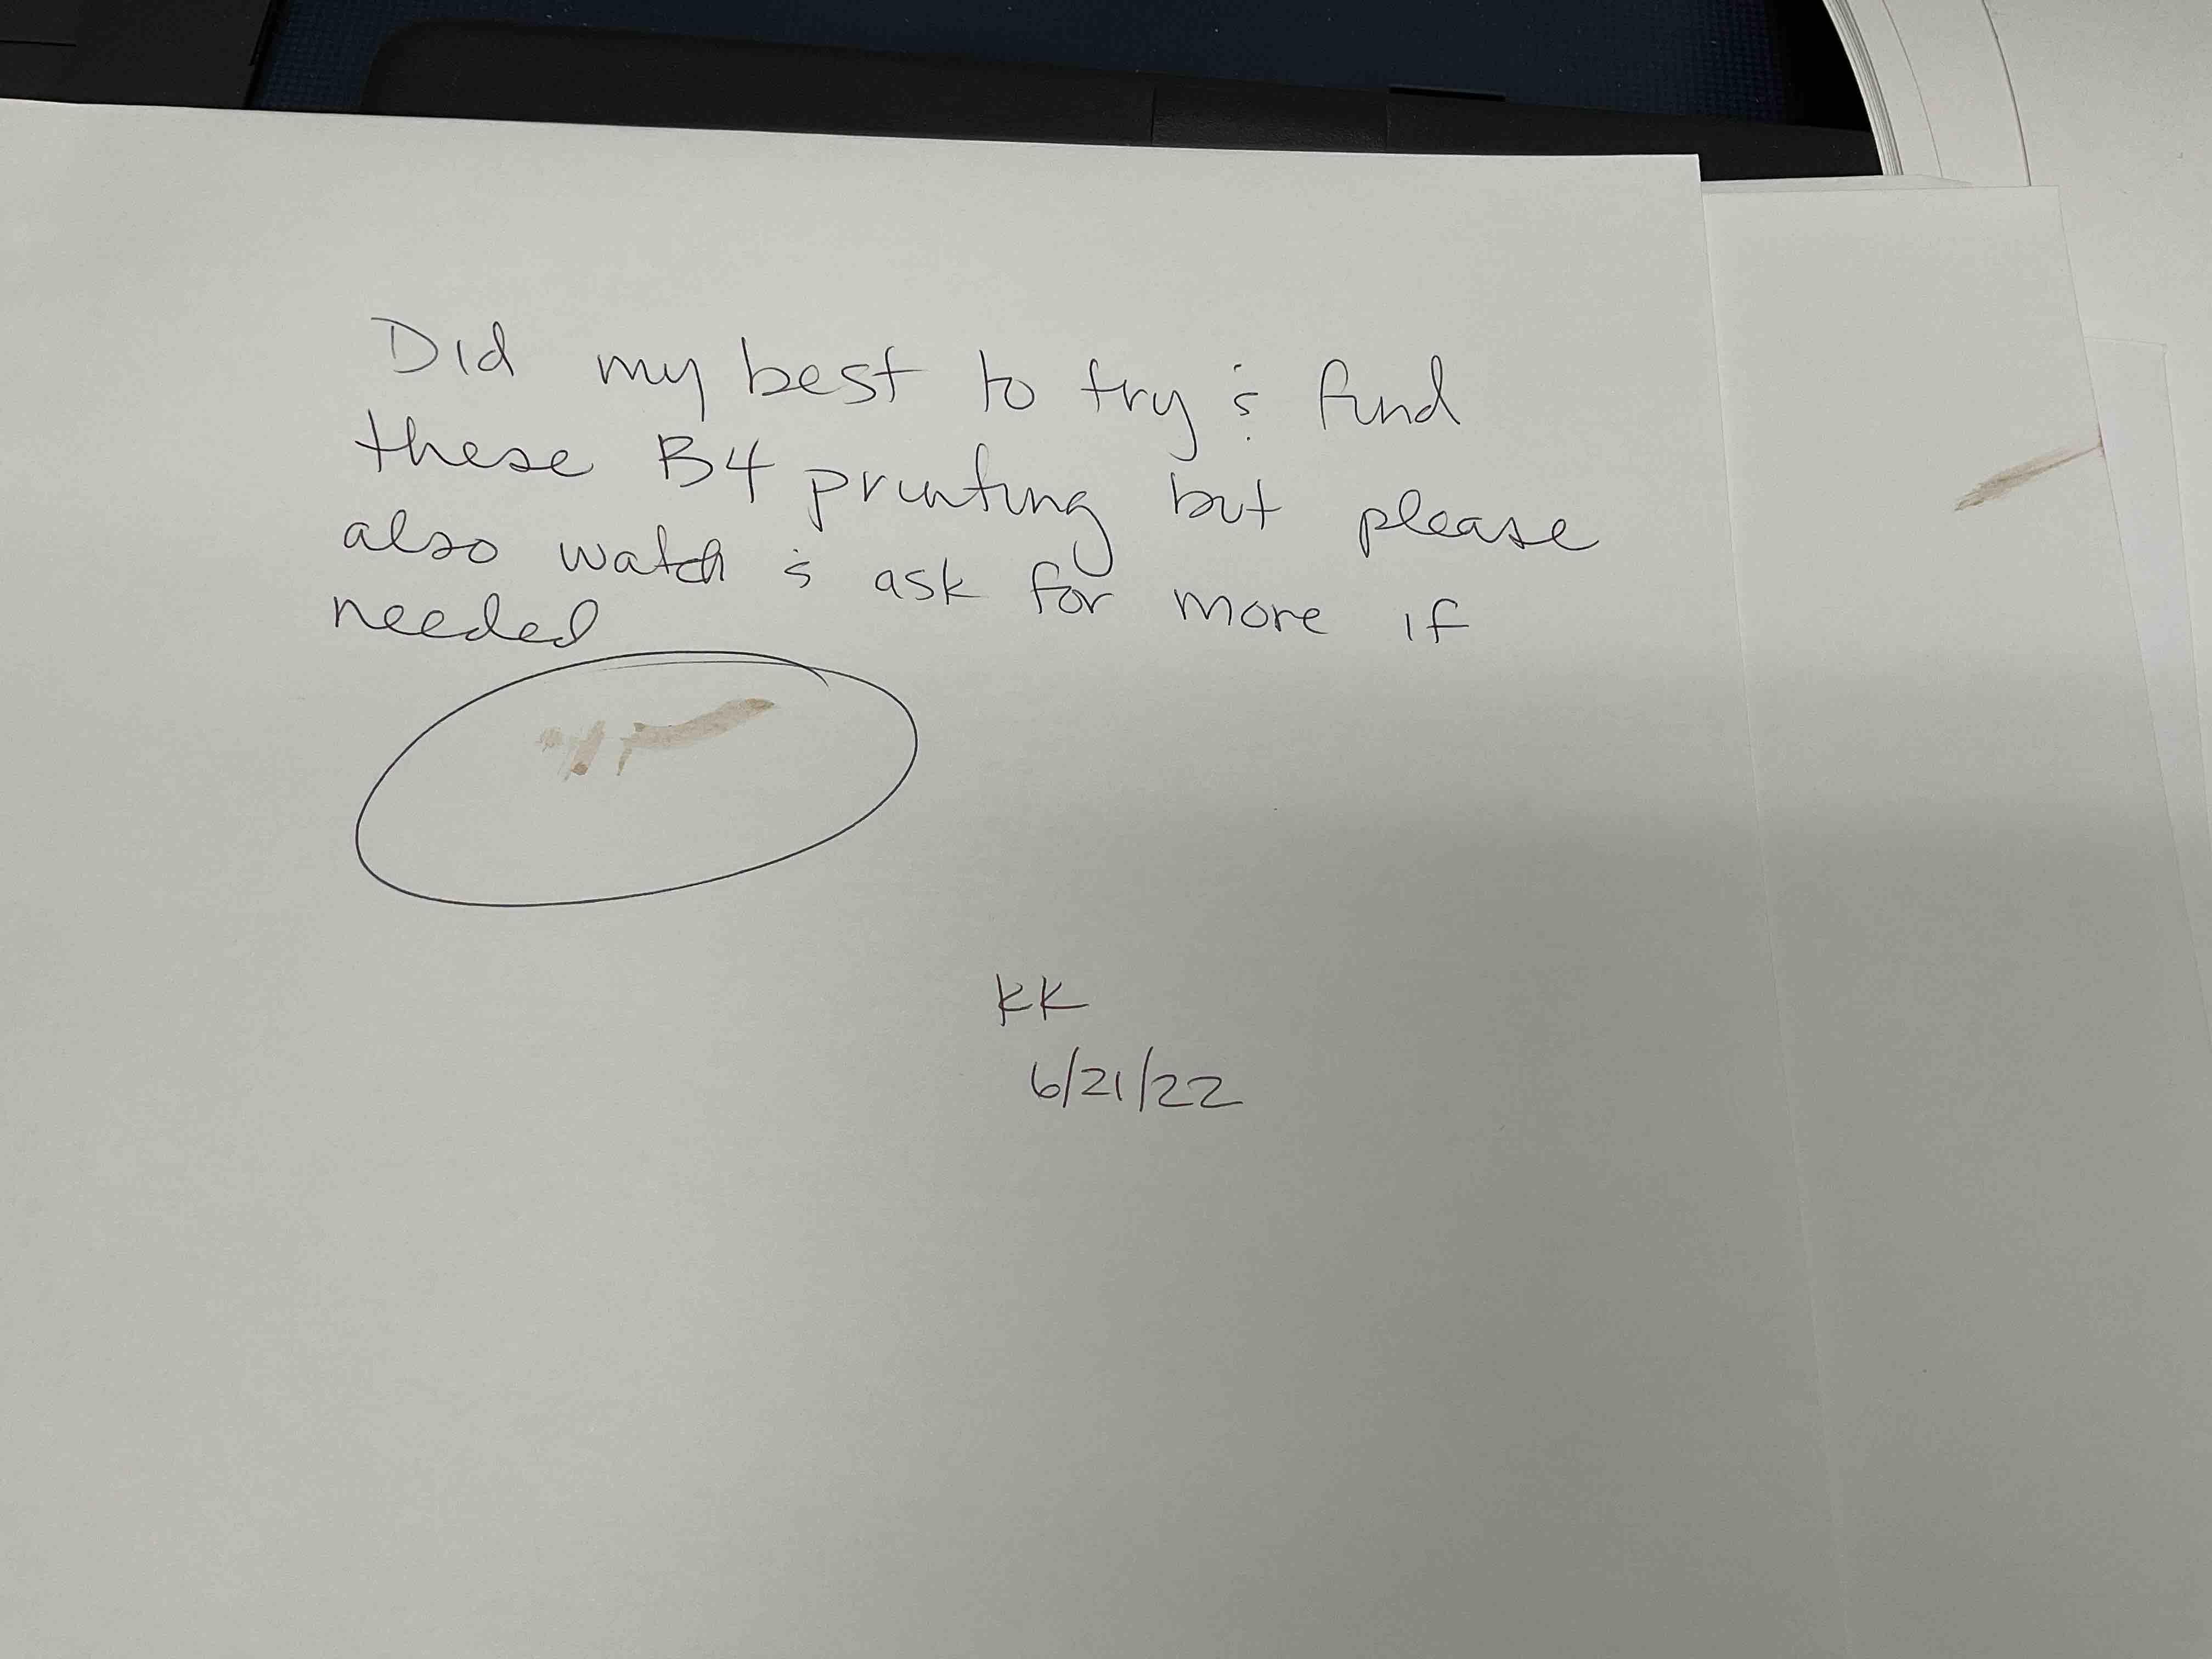 Did my best to try & find
these B4 printing but please
also watch & ask for more if
needed
KK
6/21/22